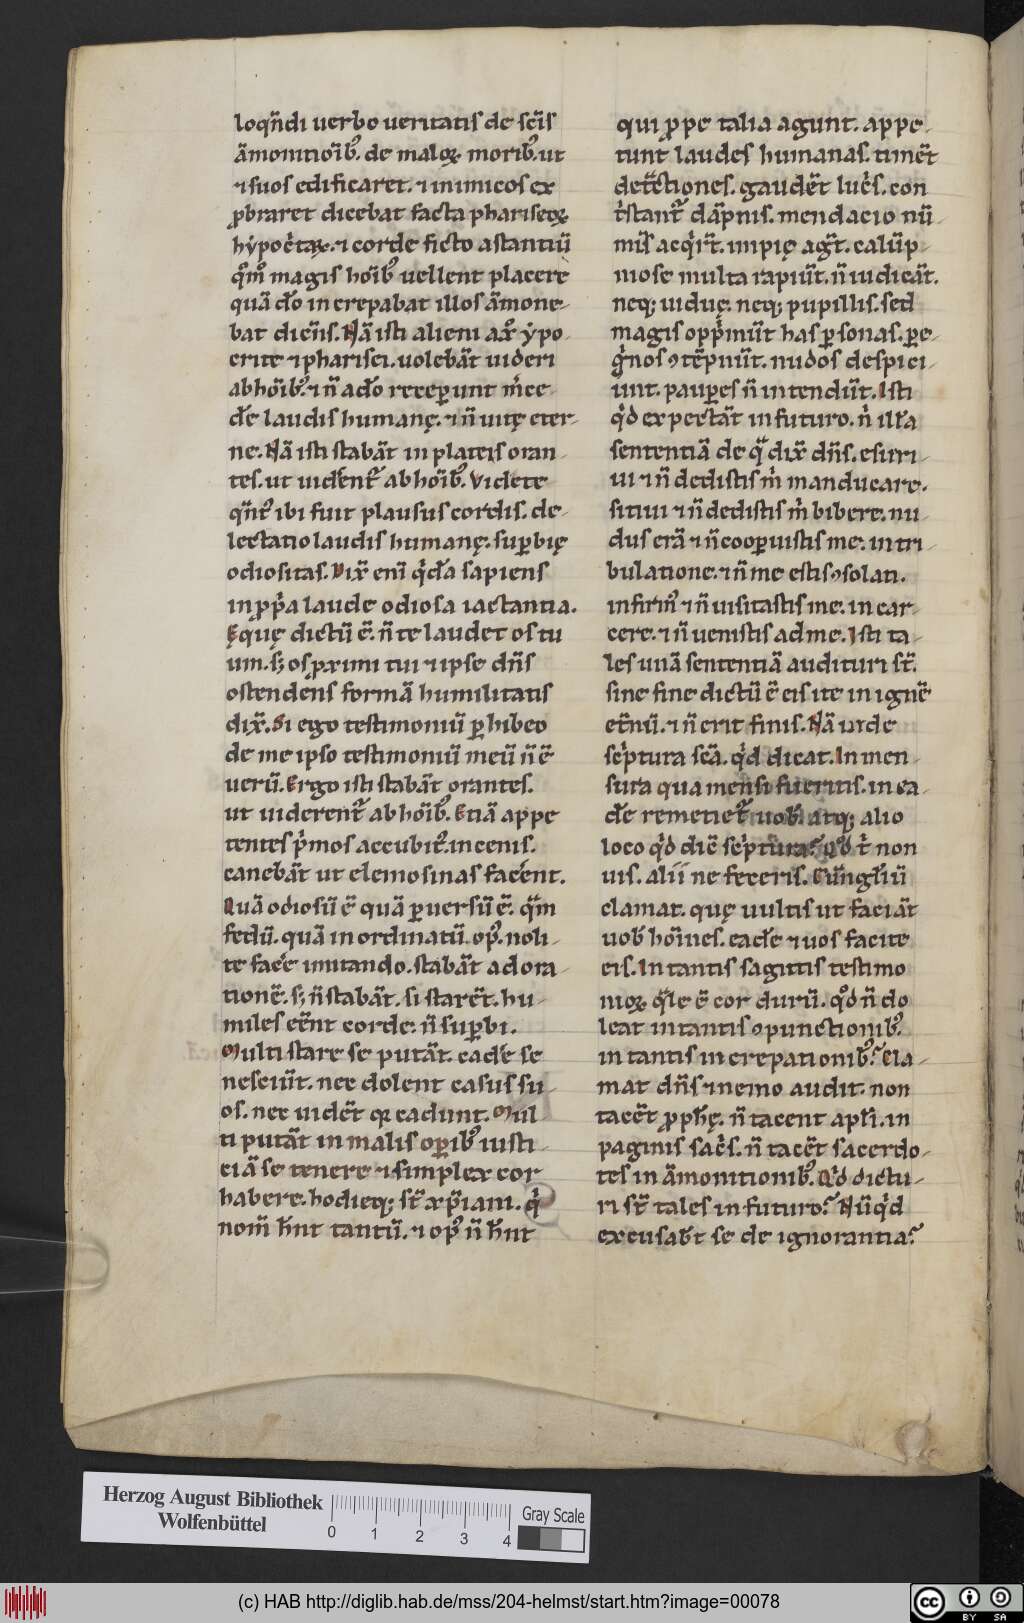 loqñdi uerbo ueritatis de scīs
āmonitioīb᷒. de maloꝝ morib᷒. ut
⁊ suos edificaret. ⁊ inimicos ex
ꝓbraret dicebat facta phariseoꝝ
hẏpoc̓taꝝ. ⁊ corde ficto astantiū
q̊m᷒ magis hoīb᷒ uellent placere
quā dō increpabat illos āmone-
bat diceñs. Nā isti alieni a x᷒. ẏpo-
crite ⁊ pharisei. uolebāt uideri
ab hoīb᷒. ⁊ ñ a dō receꝑunt m̓ce-
dē laudis humanę. ⁊ ñ uitę eter-
ne. Nā isti stabāt in plateis oran-
tes. ut uiderent᷑ ab hoīb᷒. Videte
qñt᷒ ibi fuit plausus cordis. de-
lectatio laudis humanę. suꝑbię
odiositas. Dix̄ enī q̓da sapiens
in ꝓp̓a laude odiosa iactantia.
Eque dictū ē. ñ te laudet os tu
um. sꝫ os ꝓximi tui ⁊ ipse dñs
ostendens formā humilitatis
dix̄. Si ego testimoniū ꝑhibeo
de me ipso testimoniū meū ñ ē
uerū. Ergo isti stabāt orantes.
ut uiderent᷑ ab hoīb᷒. Etiā appe
tentes p̓mos accubit᷒. in cenis.
canebāt ut elemosinas fac̓ent.
Quā odiosū ē quā ꝑuersū ē. quā
fedū. quā inordinatū. op᷒. noli-
te fac̓e imitando. stabāt adora-
tionē. sꝫ ñ stabāt. si starēt. hu-
miles eēnt corde. ñ suꝑbi.
Multi stare se putāt. cad̓e se
nesciūt. nec dolent casus su-
os. nec uidēt qꝛ cadunt. Mul
ti putāt in malis oꝑib᷒ iusti-
ciā se tenere ⁊ simplex cor
habere. hodieqꝫ st̄ xp̄iani. q̓
nom̄ hn̄t tantū. ⁊ op᷒ ñ hn̄t
qui ꝓpe talia agunt. appe-
tunt laudes humanas. timēt
det̄ctiones. gaudēt luc̓s. con
t̓stant᷑ dāpnis. mendacio nū
mis acq̓rt̄. impię agt̄. calūp-
niose multa rapiūt. ñ iudicāt.
neqꝫ uiduę. neqꝫ pupillis. sed
magis opp̓mūt has ꝑsonas. ꝑe-
g̓nos ꝯtēpnūt. nudos despici-
unt. pauꝑes ñ intendūt. Isti
q̓d expectāt in futuro. ñ illa
sententiā de q̄ dix̄ dñs. esuri-
ui ⁊ ñ dedistis m̓ manducare.
sitiui ⁊ ñ dedistis m̓ bibere. nu-
dus erā ⁊ ñ cooꝑuistis me. in tri-
bulatione. ⁊ ñ me estis ꝯsolati.
infirm᷒ ⁊ ñ uisitastis me. in car-
cere. ⁊ ñ uenistis ad me. Isti ta-
les unā sententiā audituri st̄.
sine fine dictū ē eis ite in ignē
et̄nū. ⁊ ñ erit finis. Nā uide
sc̓ptura scā. q̓d dicat. In men-
sura qua mensi fueritis. in ea-
dē remetiet᷑ uob̄. atqꝫ alio
loco q̓d diē sc̓ptura? Q̊d t̓ non
uis. alii ne feceris. Euñgliū
clamat. quę uultis ut faciāt
uob̄ hoīnes. eadē ⁊ uos facite
eis. In tantis sagittis testimo
nioꝝ q̄le ē cor durū. q̊d ñ do
leat in tantis ꝯpunctionib᷒.
in tantis increpationib᷒? Cla-
mat dñs ⁊ nemo audit. non
tacēt ꝓphę. ñ tacent apli. in
paginis sac̓s. ñ tacēt sacerdo-
tes in āmonitionib᷒. Q̓d dictu-
ri st̄ tales in futuro? Nūq̓d
excusabt̄ se de ignorantia?
Herzog August Bibliothek
Wolfenbüttel
0 1 2 3 4
Gray Scale
(c) HAB http://diglib.hab.de/mss/204-helmst/start.htm?image=00078
cc
BY SA